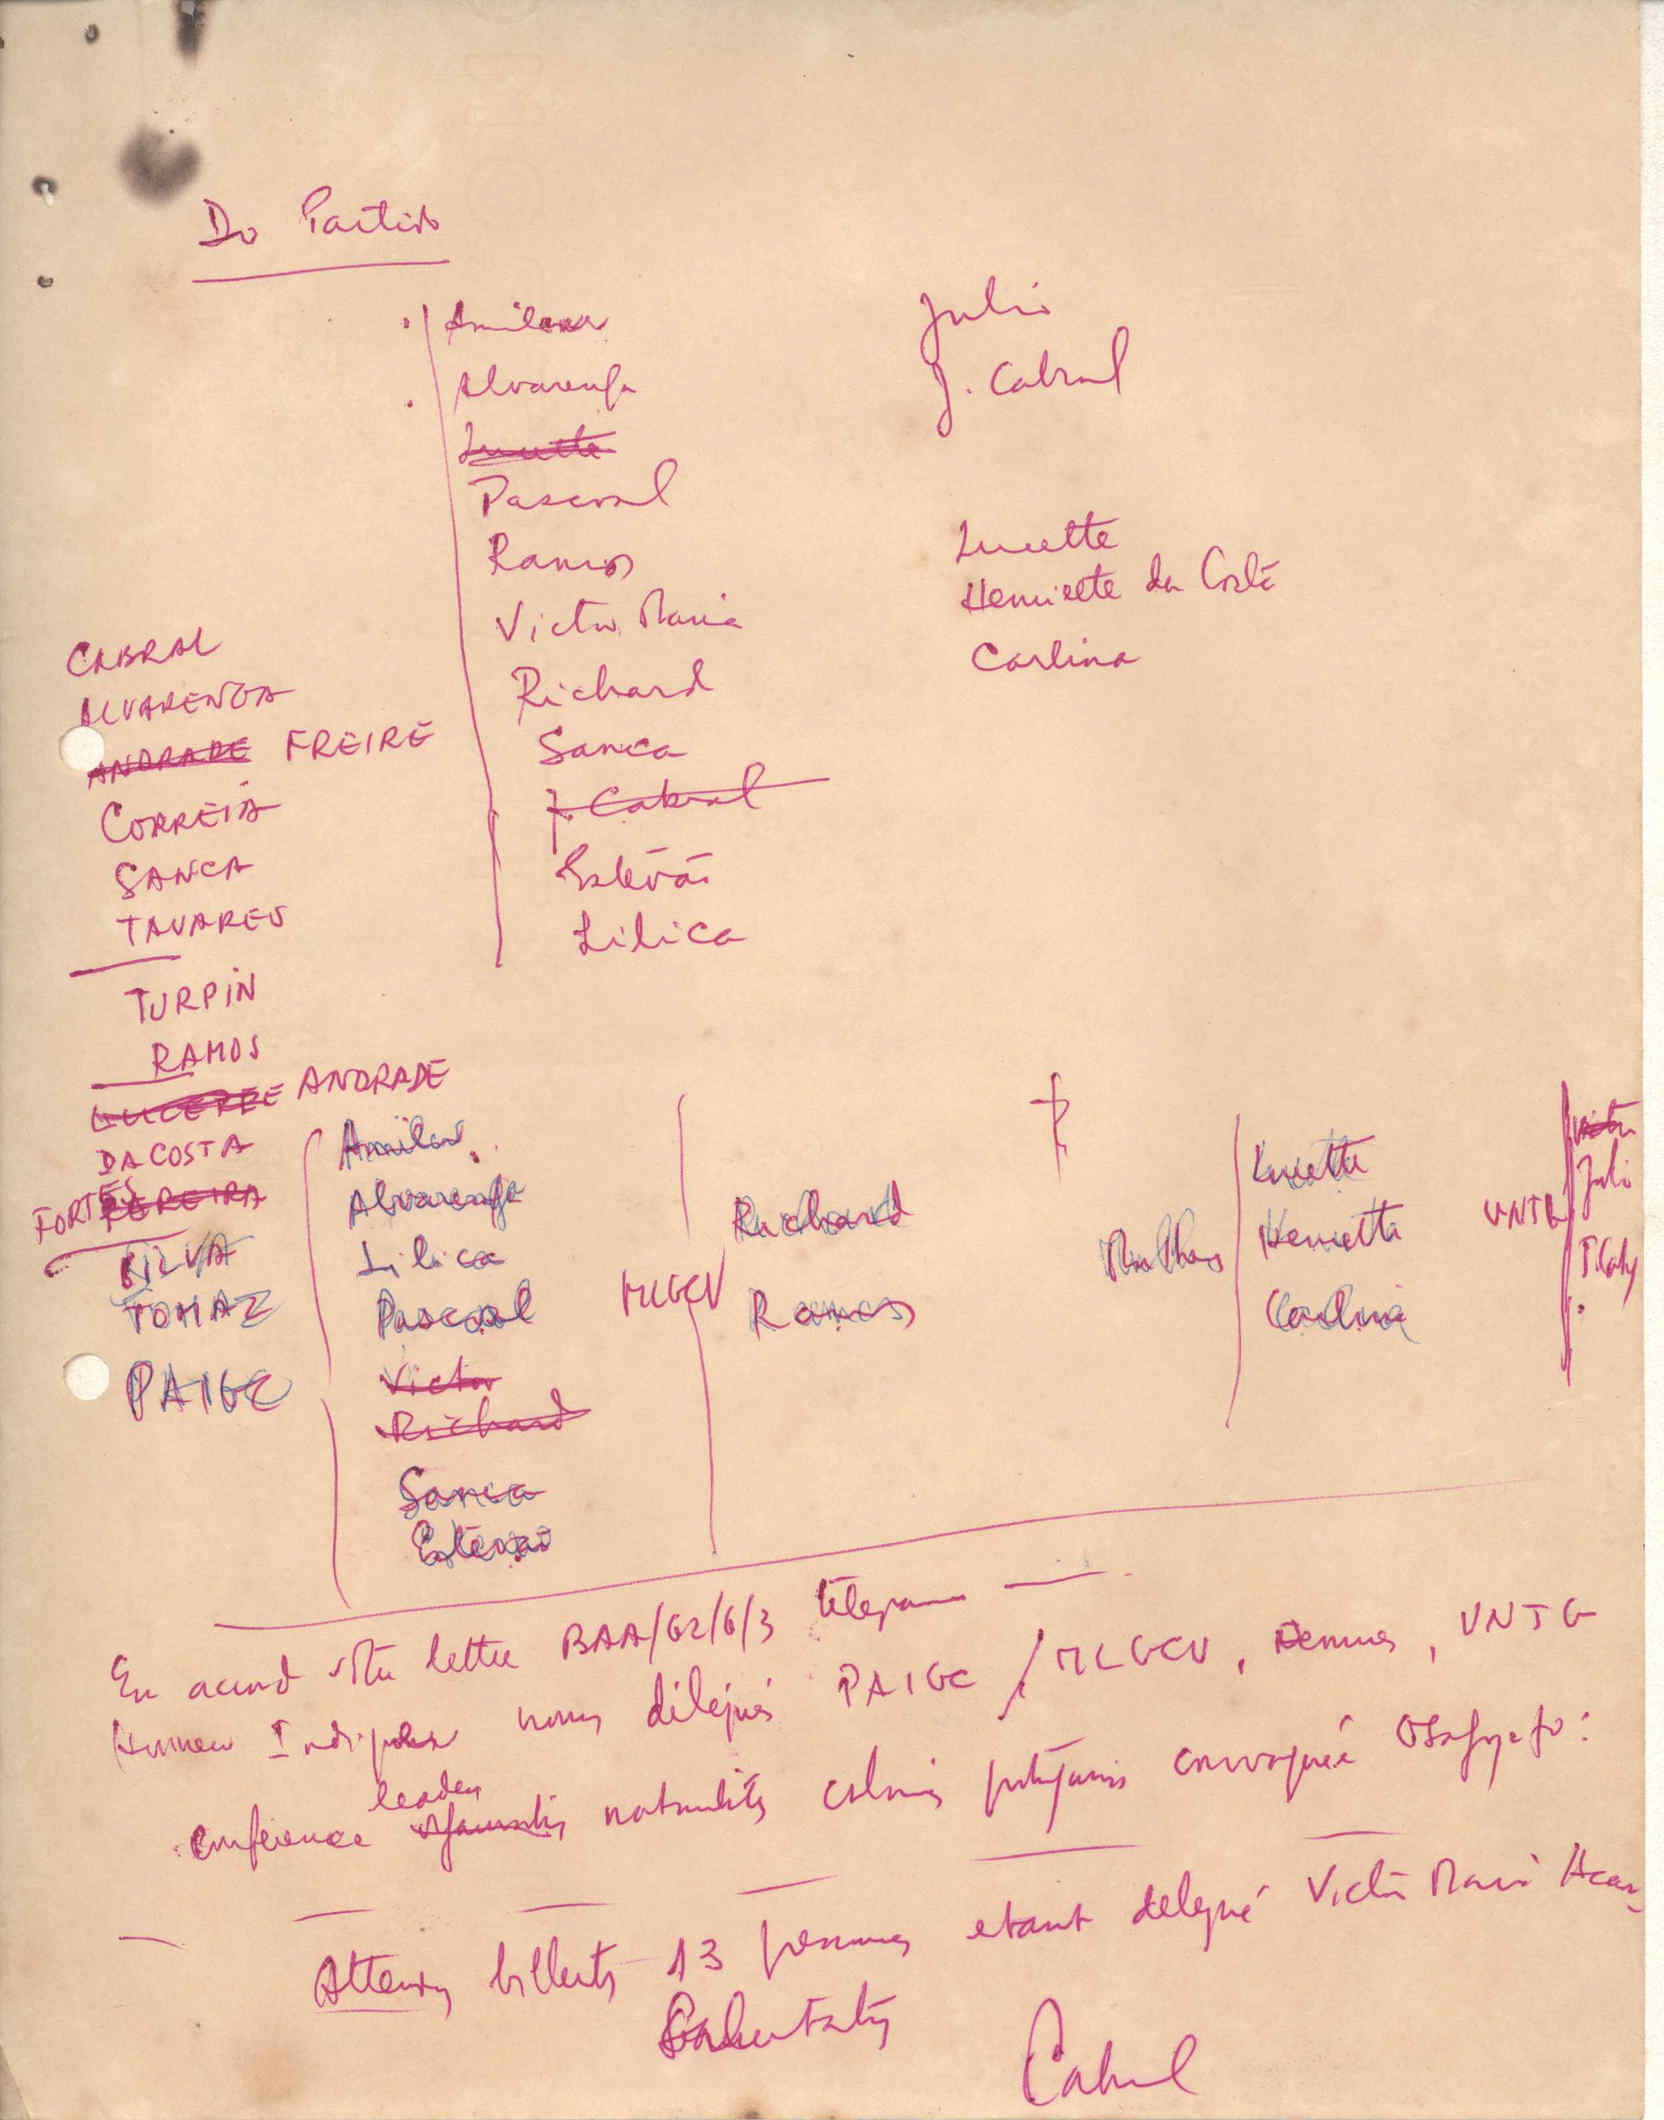 Do Partido
Amilcar
Julio
Alvarenga
J. Cabral
Lucette
Pascoal
Ramos
Lucette
Victor Maria
Henriette da Costa
Richard
Carlina
Sanca
J. Cabral
Estêvão
Lilica
CABRAL
ALVARENGA
ANDRADE FREIRE
CORREIA
SANCA
TAVARES
TURPIN
RAMOS
ANDRADE
DA COSTA
FORTES PEREIRA
SILVA
TOMAZ
PAIGC
Amilcar
Alvarenga
Lilica
Pascoal
Victor
Richard
Sanca
Estevão
MLGCV
Richard
Ramos
Lucette
Henriette
Carlina
UNTG
Victor
Julio
En accord votre lettre BAA/62/6/3 télégramme
nous délégués PAIGC / MLGCV, Femmes, UNTG
leaders
conference nationalistes colonies portugaises convoquée Osagyefo:
Attends billets 13 personnes etant delegué Victor Maria Accra
Salutations
Cabral